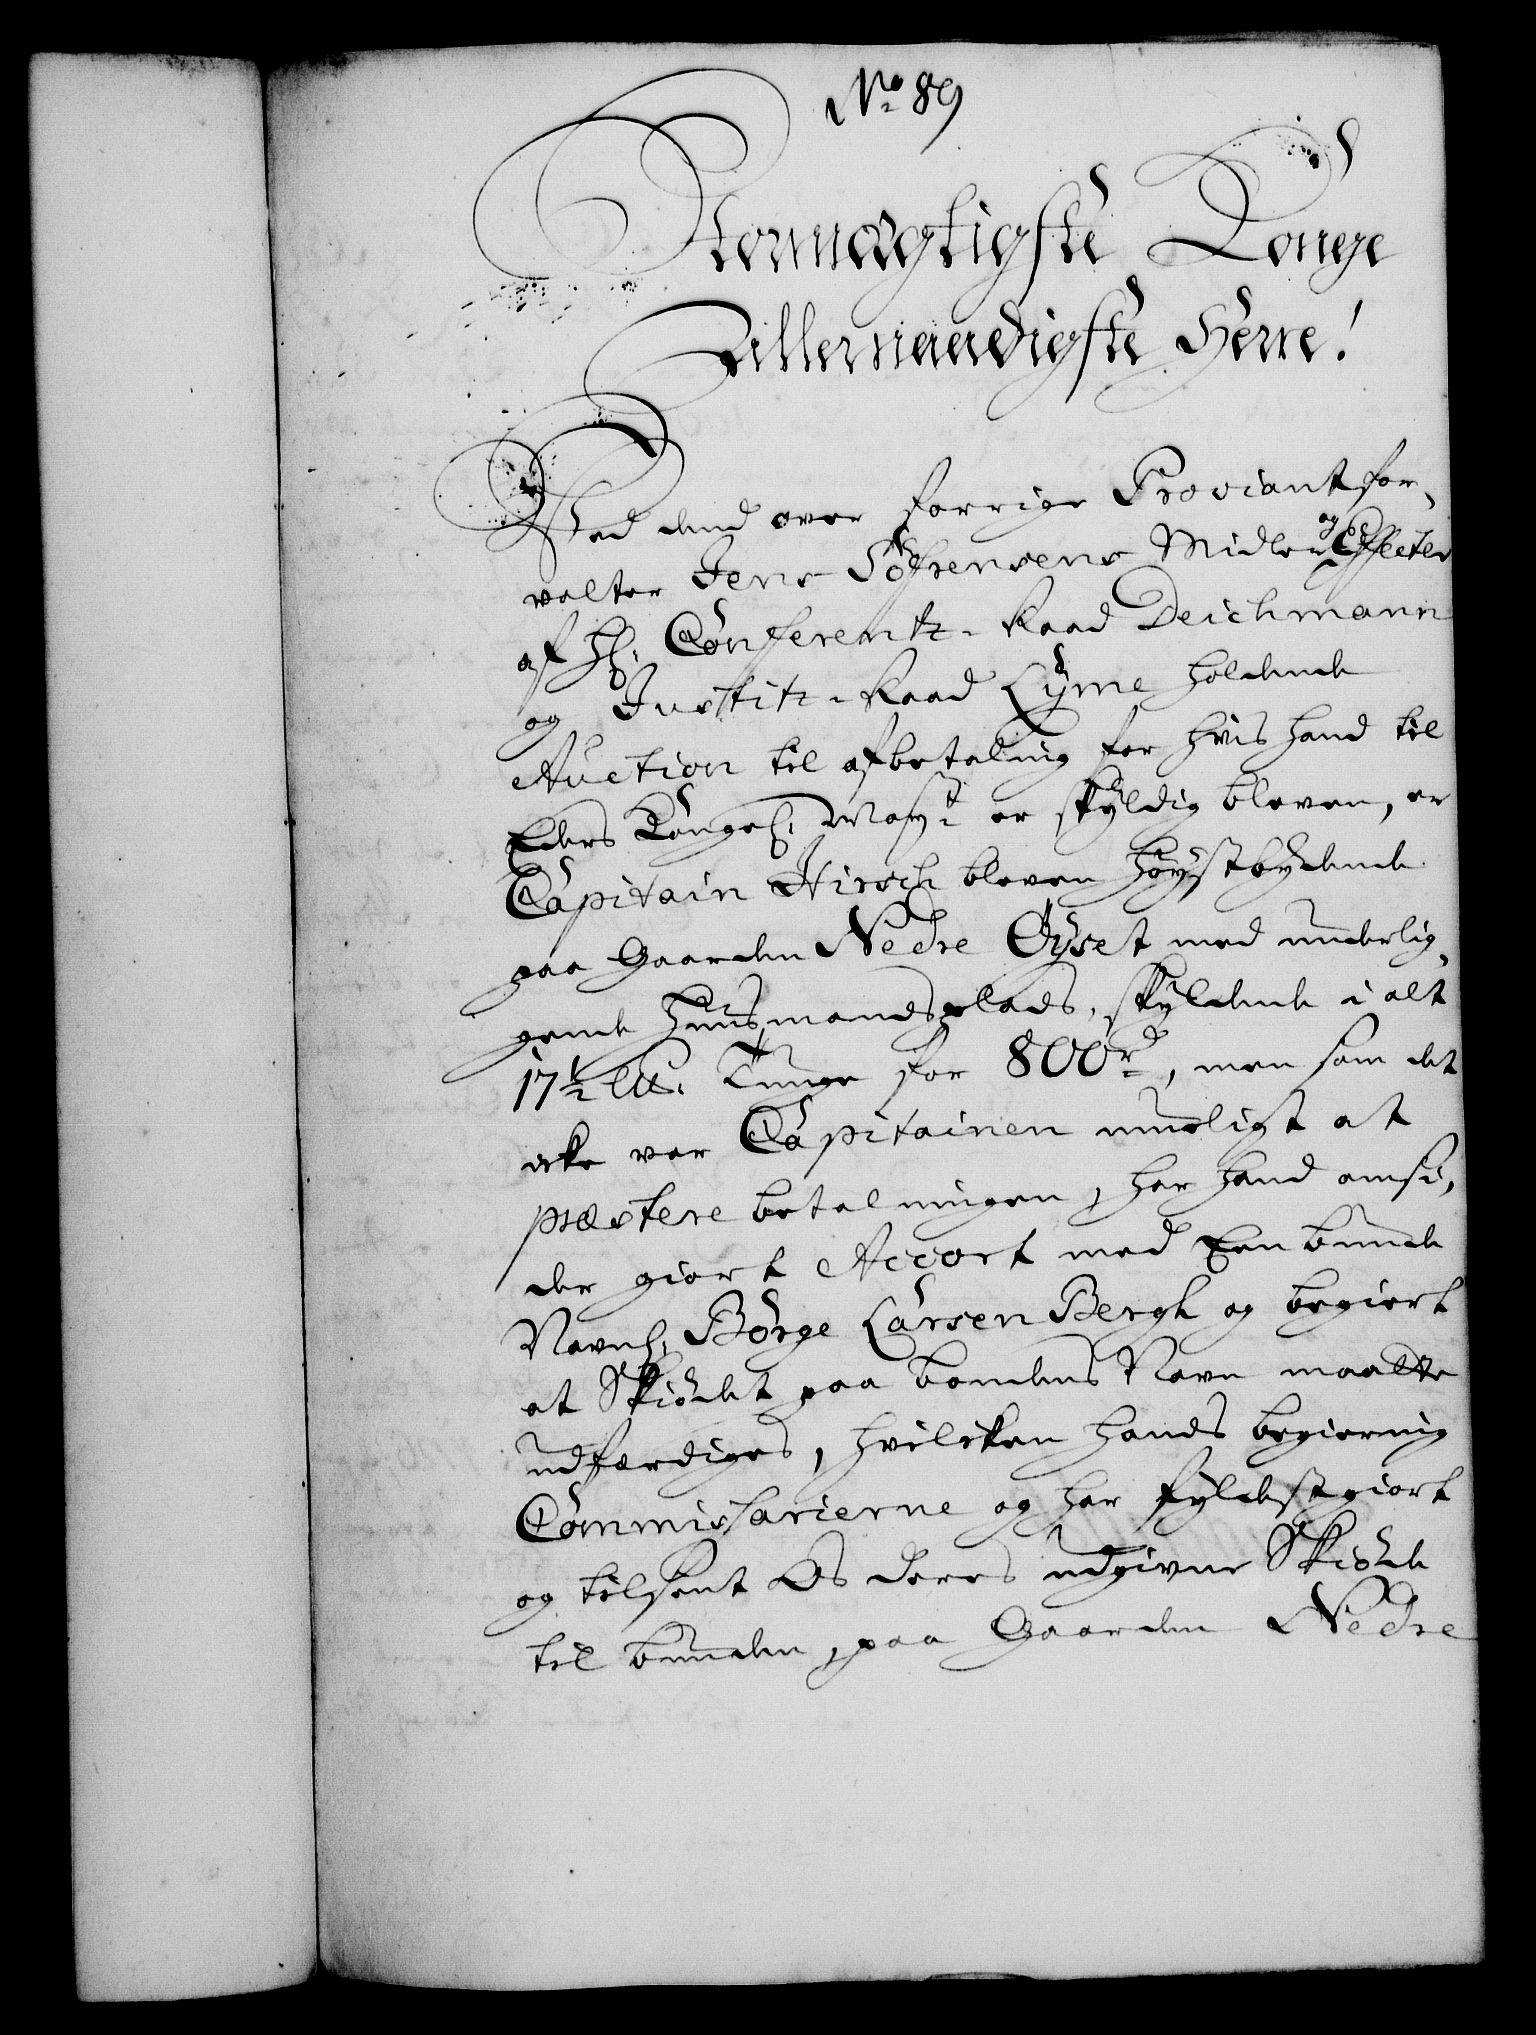 No 89
Stormægtigste Konge
Allernaadigste Herre!
Ved dend over forrige Proviantfor-
valter Jens Søfrensens Midler og Effecter
af H: Conferentz-Raad Deichmann
og Justitz-Raad Lyme holdende
Auction til afbetaling for hvis hand til
Eders Kongel: Mayt er skyldig bleven, er
Capitain Hirsch bleven høystbydende
paa Gaarden Nedre Øyset med underlig-
gende Huusmandsplads, skyldende i alt
17½ Lll: Tunge for 800 rd, men som det
icke var Capitainen mueligt at
præstere betalningen, har hand omsi-
der giort Accort med Een bunde
Navnl: Börge Larsen Bergh og begiert
at Skiödet paa bondens Navn maatte
udfærdiges, hvilcken hands begiering
Commissarierne og har fyldestgiort
og tilsent Os deres udgivne Skiöde
til bunden, paa Gaarden Nedre